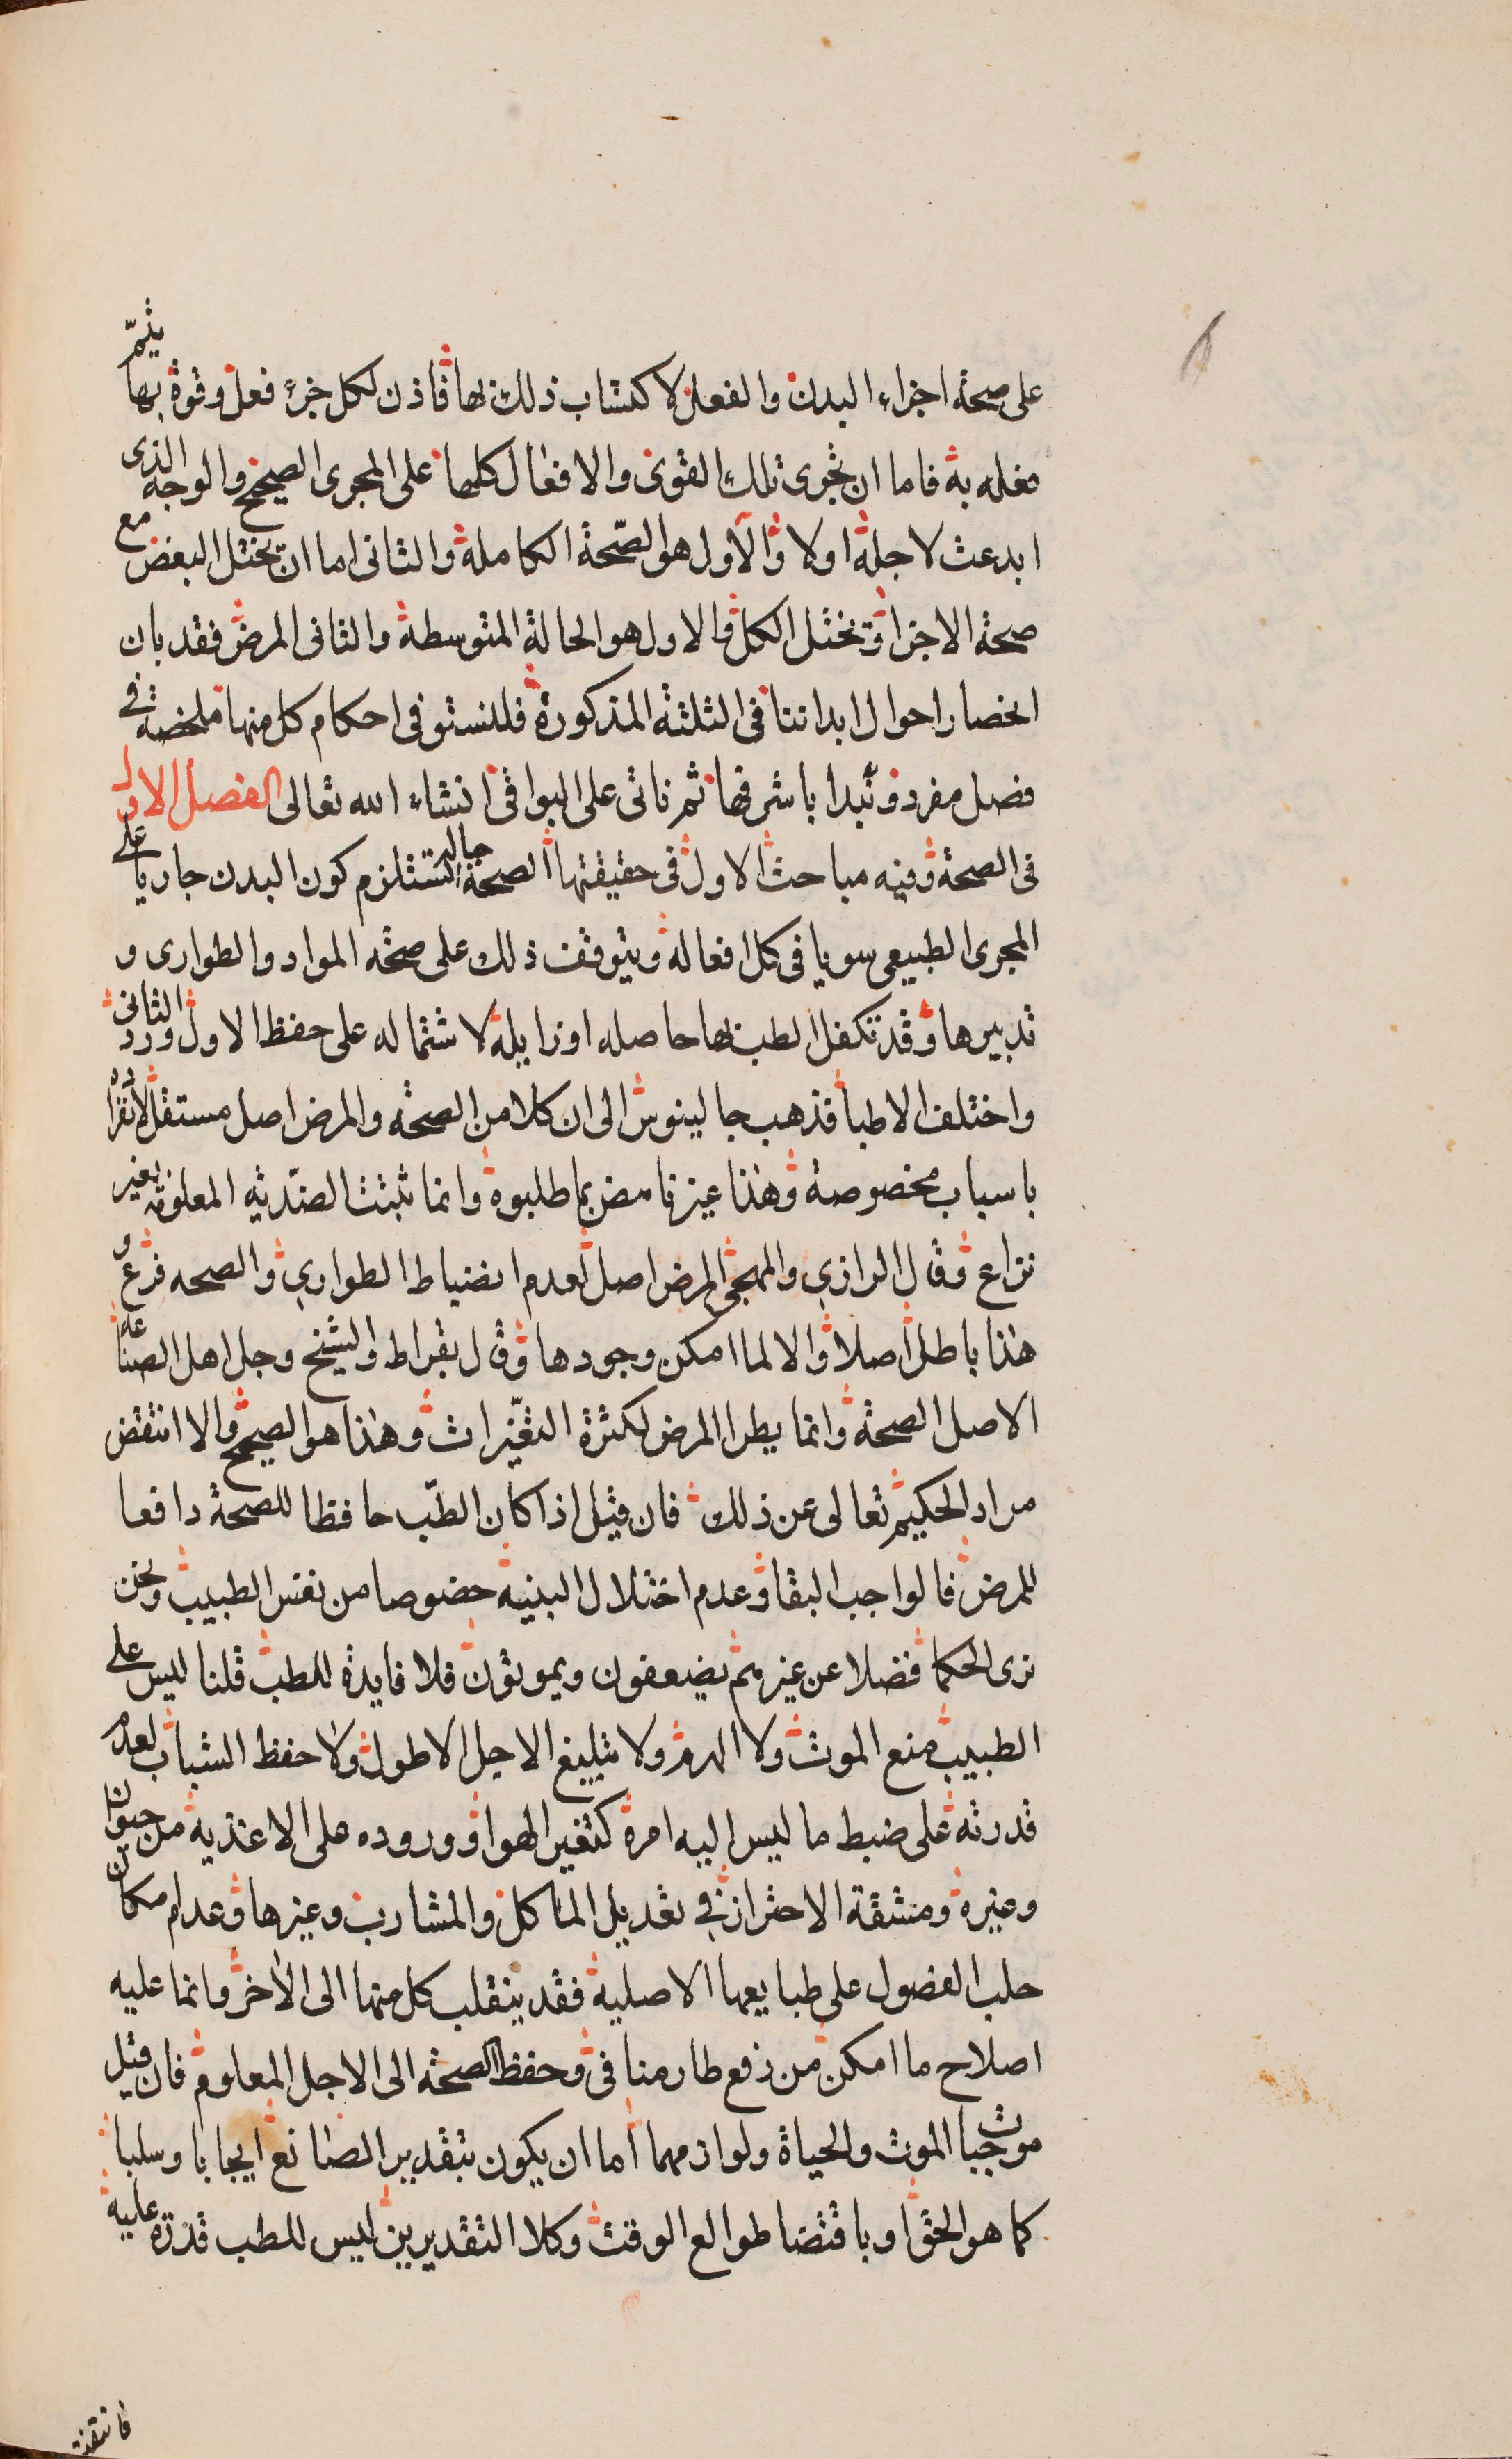 على صحة اجزاء البدن والفعل لاكتساب ذلك بها فاذن لكل جزء فعل وقوة بها يتمّ
فعله به فاما ان تجرى تلك القوى والافعال كلها على المجرى الصحيح والوجه الذى
ابدعت لاجله اولا والاول هو الصّحة الكاملة والثانى اما ان يختل البعض مع
صحة الاجزا وتختل الكل والاول هو الحالة المتوسطة والثانى المرض فقد بان
انحصار احوال ابداننا فى الثلثة المذكورة فلنستوفى احكام كل منها ملخصة فى
فصل مفرد ونبدا باشرفها ثم ناتى على البواقى انشاء الله تعالى الفصل الاول
فى الصحة وفيه مباحث الاول فى حقيقتها الصحة حالة تستلزم كون البدن جاريا على
المجرى الطبيعى سويا فى كل افعاله ويتوقف ذلك على صحة المواد والطوارى و
تدبيرها وقد تكفل الطب بها حاصله او زايلة لاشتماله على حفظ الاول ورد الثانى
واختلف الاطبا فذهب جالينوس الى ان كلا من الصحة والمرض اصل مستقل لانفراده
باسباب مخصوصة وهذا غير ناهض بما طلبوه وانما تثبت الضدّيه المعلومة بغير
نزاع وقال الرازي والمهجى المرض اصل لعدم انضباط الطواري والصحه فرع و
هذا باطل اصلا والا لما امكن وجودها وقال بقراط والشيخ وجل اهل الصناعة
الاصل الصحة وانما يطرا المرض لكثرة التغيّرات وهذا هو الصحيح والا انتقض
مراد الحكيم تعالى عن ذلك فان قيل اذا كان الطّب حافظا للصحة دافعا
للمرض فالواجب البقا وعدم اختلال البنيه خصوصا من نفس الطبيب ونحن
نرى الحكما فضلا عن غيرهم يضعفون ويموتون فلا فايدة للطب قلنا ليس على
الطبيب منع الموت ولا الهرم ولا تبليغ الاجل الاطول ولا حفظ الشباب لعدم
قدرته على ضبط ما ليس اليه امره كتغير الهوا ووروده على الاغذيه من حيوان
وغيره ومشقة الاحتراز فى تعديل الماكل والمشارب وغيرها وعدم امكان
جلب الفصول على طبايعها الاصلية فقد ينقلب كل منها الى الاخر وانما عليه
اصلاح ما امكن من دفع طار منافى وحفظ الصحة الى الاجل المعلوم فان قيل
موجبات الموت والحياة ولوازمهما اما ان يكون بتقدير الصانع ايجابا وسلبا
كما هو الحق او باقتضا طوالع الوقت وكلا التقديرين ليس للطب قدرة عليه